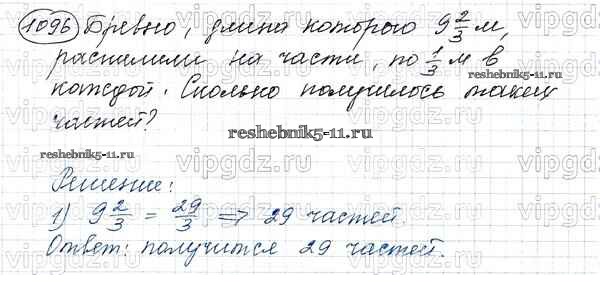 1096 Бревно, длина которого 9 2/3 м,
распилили на части, по 1/3 м в
каждой. Сколько получилось таких
частей?
reshebnik5-11.ru
reshebnik5-11.ru
reshebnik5-11.ru
Решение:
1) 9 2/3 = 29/3 => 29 частей.
Ответ: получится 29 частей.
vipgdz.ru